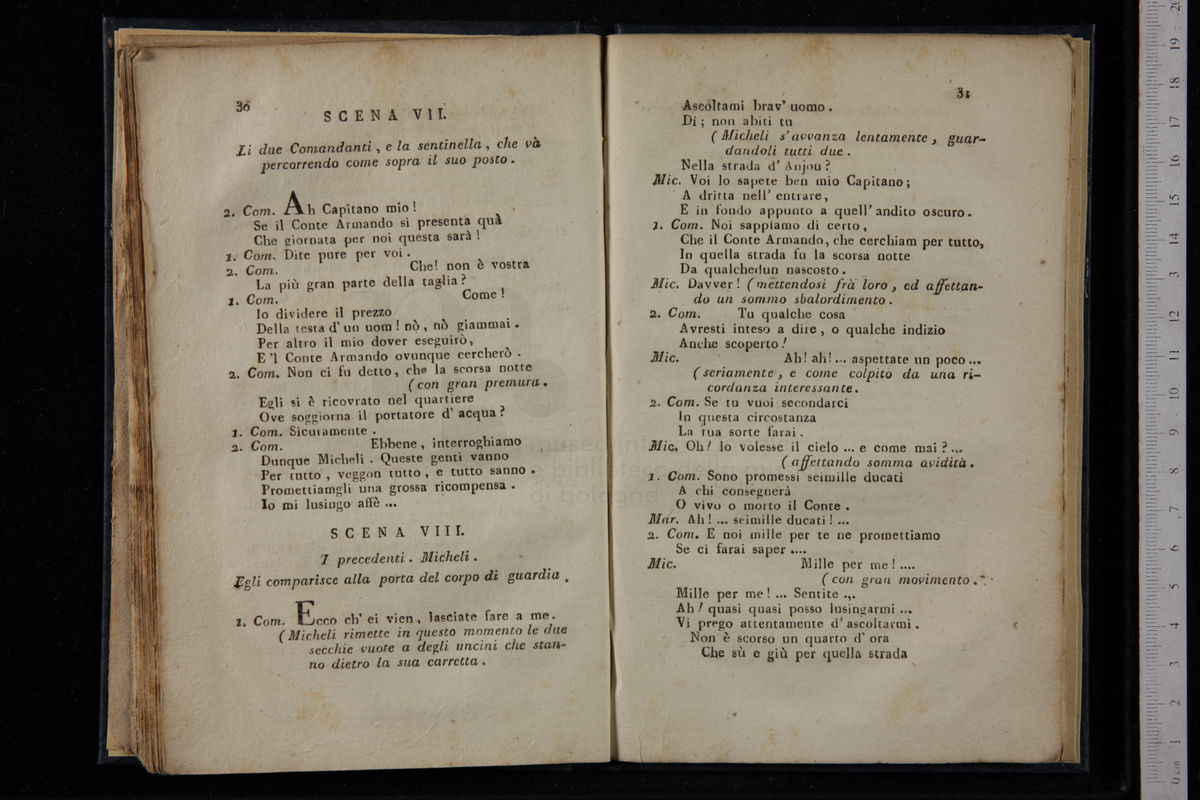 30
SCENA VII.
Li due Comandanti, e la sentinella, che và
percorrendo come sopra il suo posto.
2. Com. Ah Capitano mio!
Se il Conte Armando si presenta quà
Che giornata per noi questa sarà!
1. Com. Dite pure per voi.
2. Com. Che! non è vostra
La più gran parte della taglia?
1. Com. Come!
Io dividere il prezzo
Della testa d'un uom! nò, nò giammai.
Per altro il mio dover eseguirò,
E 'l Conte Armando ovunque cercherò.
2. Com. Non ci fu detto, che la scorsa notte
(con gran premura.
Egli si è ricovrato nel quartiere
Ove soggiorna il portatore d'acqua?
1. Com. Sicuramente.
2. Com. Ebbene, interroghiamo
Dunque Micheli. Queste genti vanno
Per tutto, veggon tutto, e tutto sanno.
Promettiamgli una grossa ricompensa.
Io mi lusingo affè ...
SCENA VIII.
I precedenti. Micheli.
Egli comparisce alla porta del corpo di guardia.
2. Com. Ecco ch' ei vien, lasciate fare a me.
(Micheli rimette in questo momento le due
secchie vuote a degli uncini che stan-
no dietro la sua carretta.
31
Ascoltami brav' uomo.
Di; non abiti tu
(Micheli s'avvanza lentamente, guar-
dandoli tutti due.
Nella strada d' Anjou?
Mic. Voi lo sapete ben mio Capitano;
A dritta nell' entrare,
E in fondo appunto a quell' andito oscuro.
1. Com. Noi sappiamo di certo,
Che il Conte Armando, che cerchiam per tutto,
In quella strada fu la scorsa notte
Da qualchedun nascosto.
Mic. Davver! (mettendosi frà loro, ed affettan-
do un sommo sbalordimento.
2. Com. Tu qualche cosa
Avresti inteso a dire, o qualche indizio
Anche scoperto!
Mic. Ah! ah! ... aspettate un poco ...
(seriamente, e come colpito da una ri-
cordanza interessante.
2. Com. Se tu vuoi secondarci
In questa circostanza
La tua sorte farai.
Mic. Oh! lo volesse il cielo ... e come mai? ...
(affettando somma avidità.
1. Com. Sono promessi seimille ducati
A chi consegnerà
O vivo o morto il Conte.
Mar. Ah! ... seimille ducati! ...
2. Com. E noi mille per te ne promettiamo
Se ci farai saper ....
Mic. Mille per me! ....
(con gran movimento.
Mille per me! ... Sentite ...
Ah! quasi quasi posso lusingarmi ...
Vi prego attentamente d' ascoltarmi.
Non è scorso un quarto d' ora
Che sù e giù per quella strada